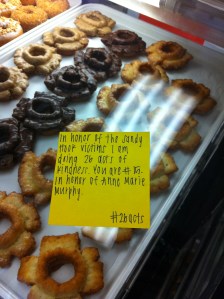 In honor of the Sandy
Hook victims I am
doing 26 acts of
kindness. You are
In honor of Anne Marie
Murphy.
#26acts